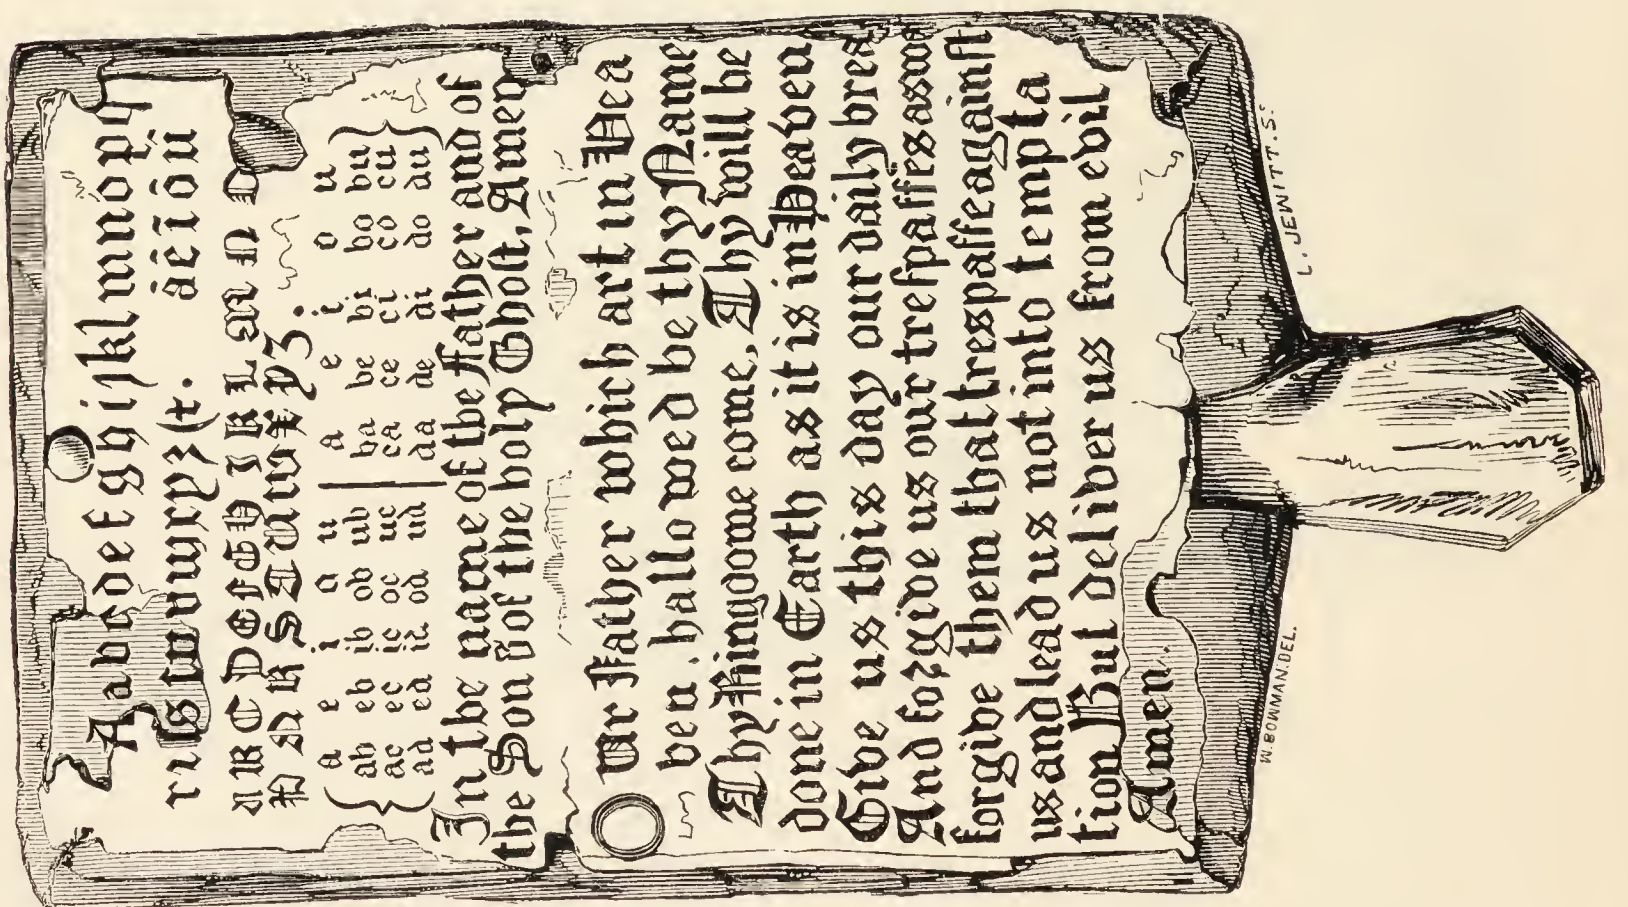 A a b c d e f g h i j k l m n o p q
r ſ s t u v w x y z &c. ā ē ī ō ū
A B C D E F G H I K L M N O
P Q R S T U W X Y Z.
a e i o u a e i o u
ab eb ib ob ub ba be bi bo bu
ac ec ic oc uc ca ce ci co cu
ad ed id od ud da de di do du
In the name of the Father and of
the Son & of the holy Ghoſt, Amen
Our Father which art in Hea
ven, hallowed be thy Name
Thy Kingdome come, Thy will be
done in Earth as it is in Heaven
Give us this day our daily brea
And forgive us our treſpaſſes as we
forgive them that trespaſſe againſt
us and lead us not into tempta
tion But deliver us from evil
Amen.
W. BOWMAN. DEL.
L. JEWITT. S.